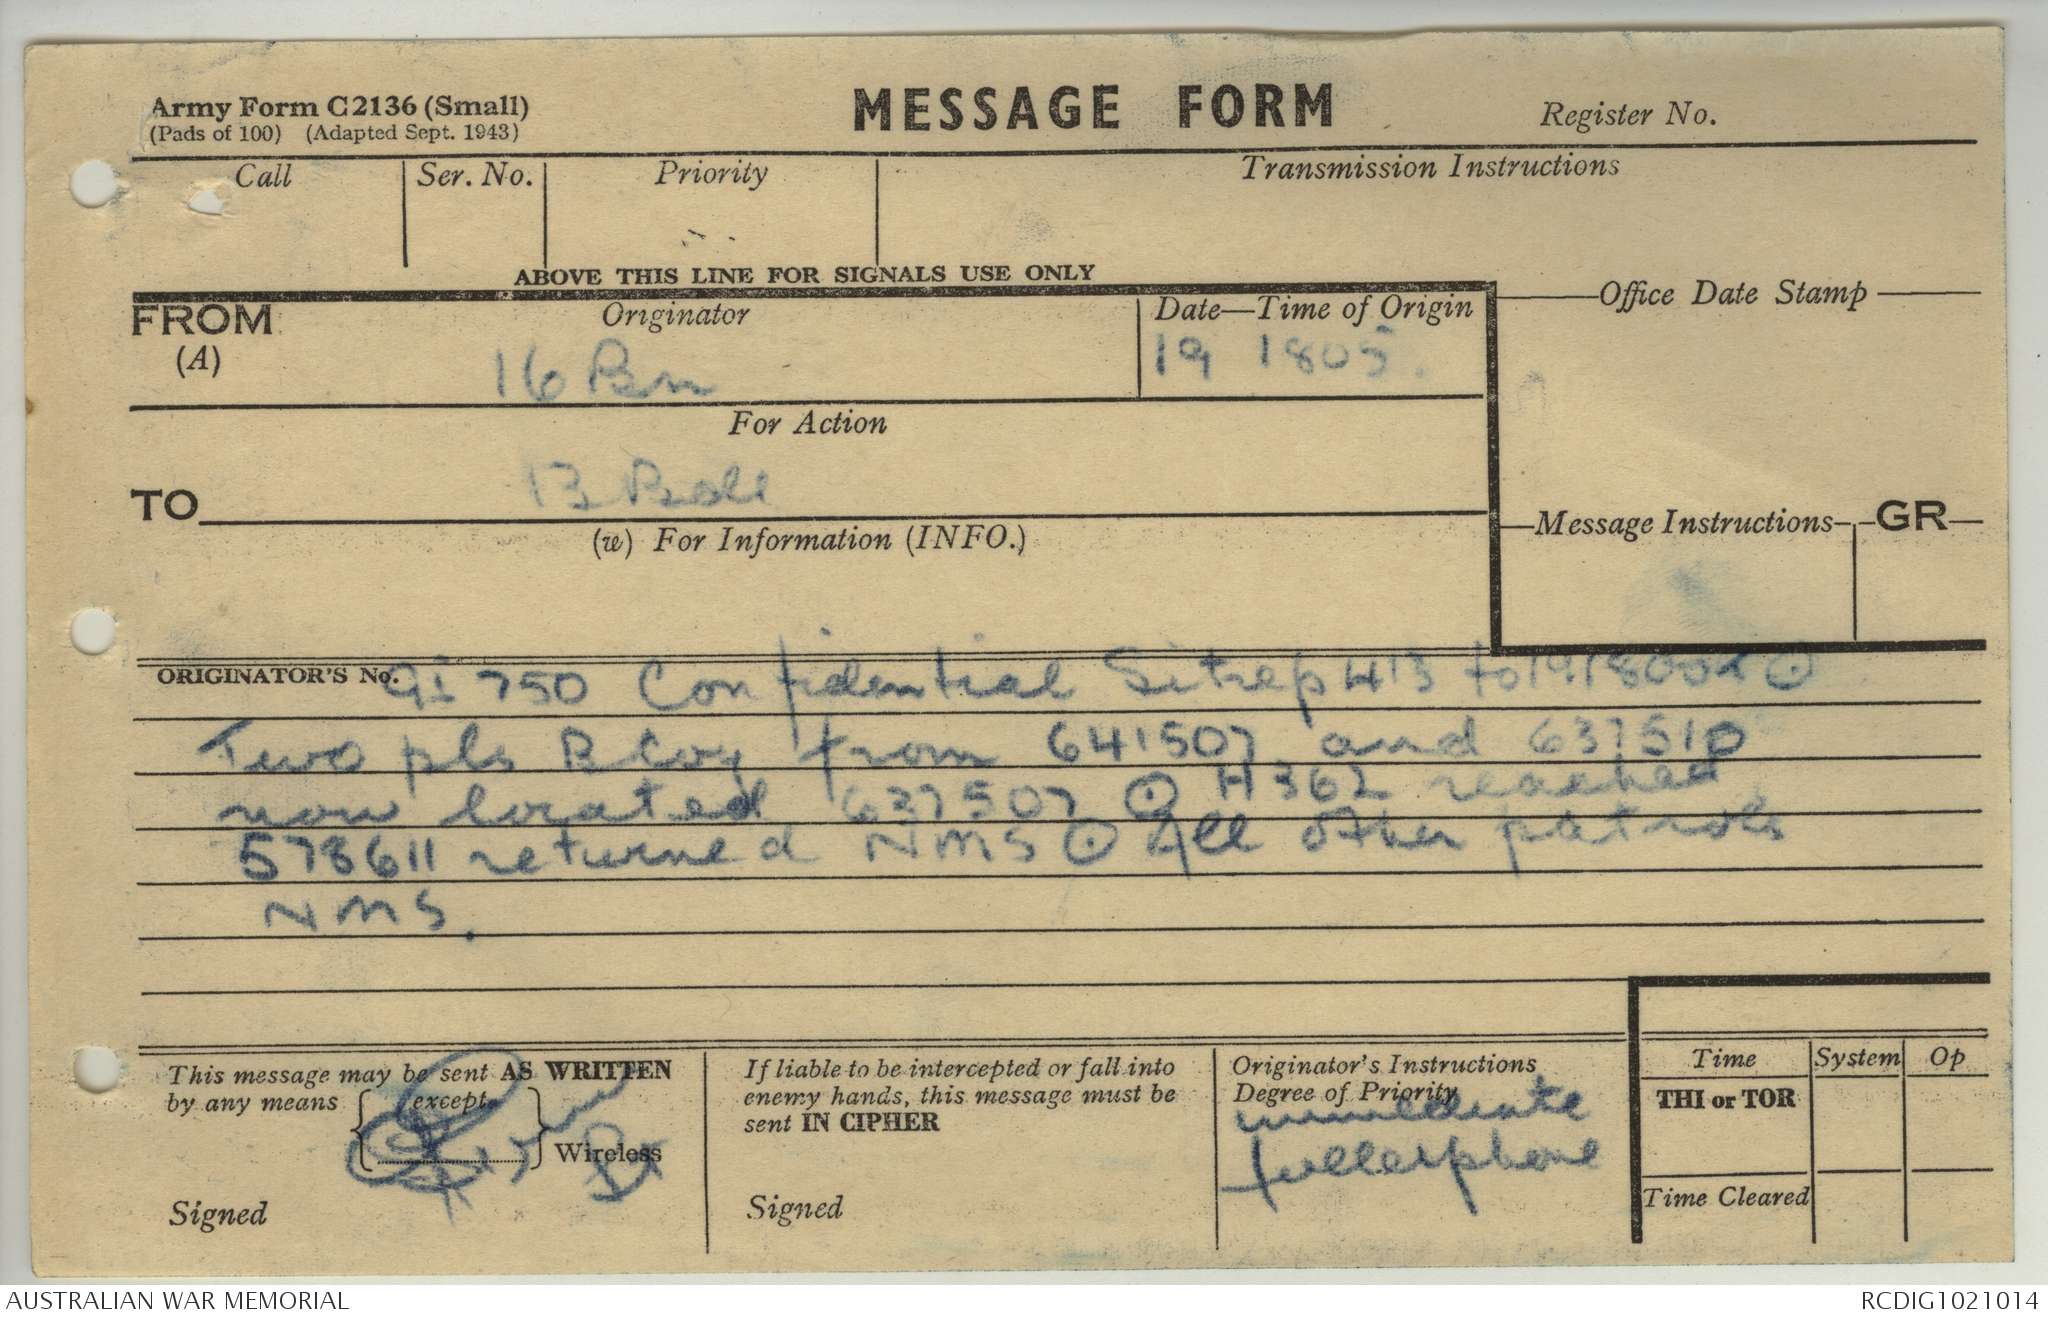 Army Form C2136 (Small)
(Pads of 100) (Adapted Sept. 1943)
MESSAGE FORM
Register No.
Call
Ser. No.
Priority
Transmission Instructions
ABOVE THIS LINE FOR SIGNALS USE ONLY
FROM
(A)
Originator
16 Bn
Date—Time of Origin
19 1805.
Office Date Stamp
For Action
TO
13 Bde
(w) For Information (INFO.)
Message Instructions
GR
ORIGINATOR'S No.
GI 750 Confidential Sitrep 413 to 191800K ⊙
Two pls B Coy from 641507 and 637510
now located 637507 ⊙ H362 reached
578611 returned NMS ⊙ All other patrols
NMS.
This message may be sent AS WRITTEN
by any means { except } Wireless
Signed
If liable to be intercepted or fall into
enemy hands, this message must be
sent IN CIPHER
Signed
Originator's Instructions
Degree of Priority
immediate
fullerphone
Time
System
Op
THI or TOR
Time Cleared
AUSTRALIAN WAR MEMORIAL
RCDIG1021014